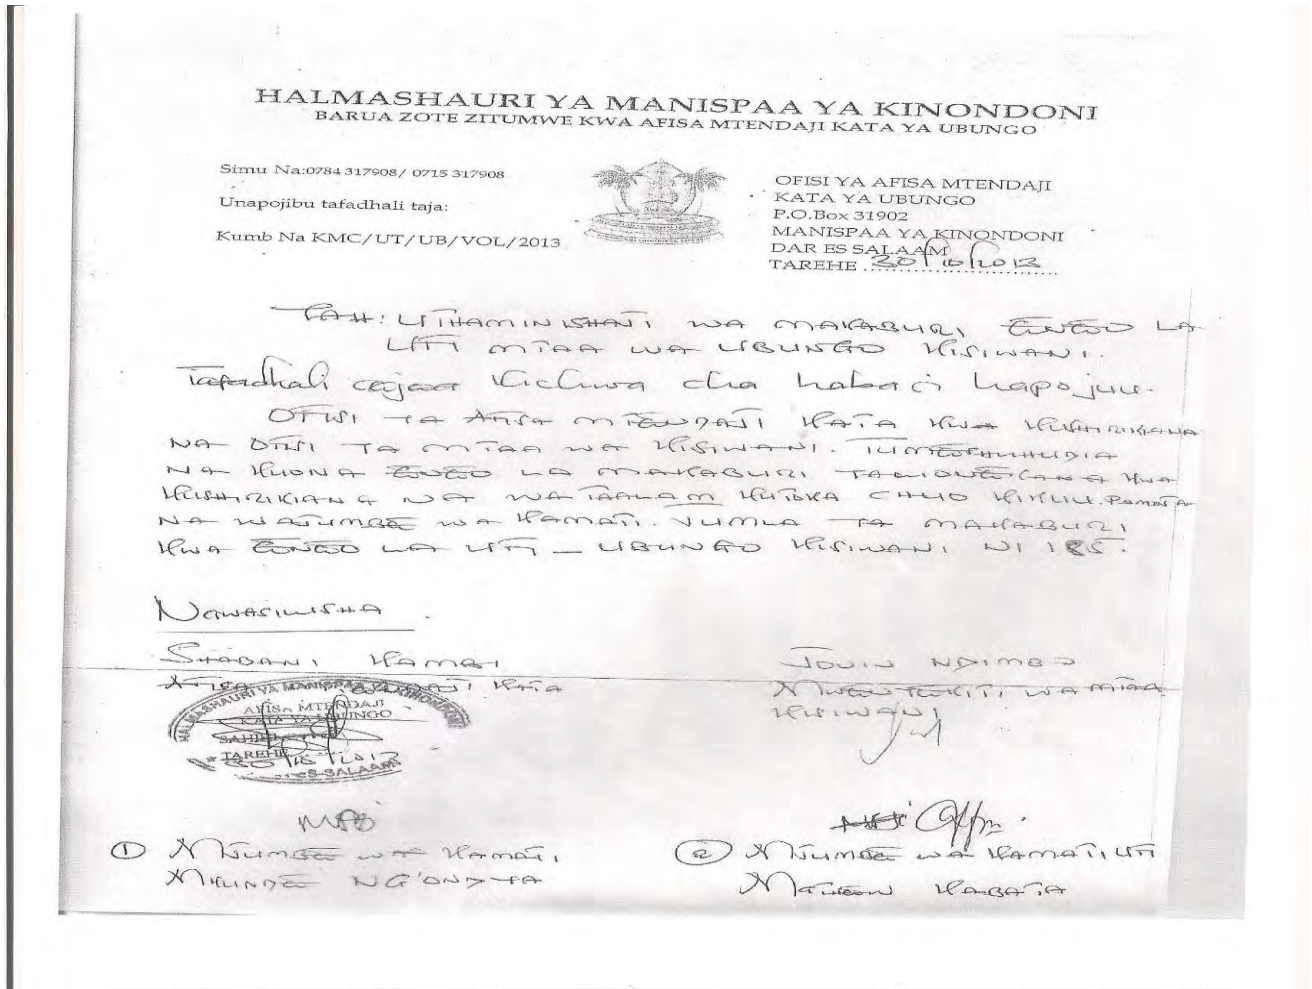 HALMASHAURI YA MANISPAA YA KINONDONI
BARUA ZOTE ZITUMWE KWA AFISA MTENDAJI KATA YA UBUNGO
Simu Na:0784 317908/ 0715 317908
Unapojibu tafadhali taja:
Kumb Na KMC/UT/UB/VOL/2013
OFISI YA AFISA MTENDAJI
KATA YA UBUNGO
P.O.Box 31902
MANISPAA YA KINONDONI
DAR ES SALAAM
TAREHE 30/10/2013
YAH: UTHAMINISHAJI WA MAKABURI ENEO LA
UTI MTAA WA UBUNGO KISIWANI.
Tafadhali kichwa cha habari hapo juu.
OFISI YA AFISA MTENDAJI KATA KWA KUSHIRIKIANA
NA OFISI YA MTAA WA KISIWANI. TUMESHUHUDIA
NA KUONA ENEO LA MAKABURI YALIONEKANA KWA
KUSHIRIKIANA NA WATAALAM KUTOKA CHUO KIKUU. Pamoja
NA WAJUMBE WA KAMATI. JUMLA YA MAKABURI
KWA ENEO LA UTI - UBUNGO KISIWANI NI 185.
NAWASILISHA.
SHABANI KAMBI
AFISA MTENDAJI KATA
HALMASHAURI YA MANISPAA YA KINONDONI
AFISA MTENDAJI
KATA YA UBUNGO
SAHIHI
TAREHE 30/10/2013
DAR-ES-SALAAM
JOVIN NDIMBO
MWENYEKITI WA MTAA
KISIWANI
① MJUMBE WA KAMATI,
MKUNDE NG'ONDYA
② MJUMBE WA KAMATI, UTI
KABATA